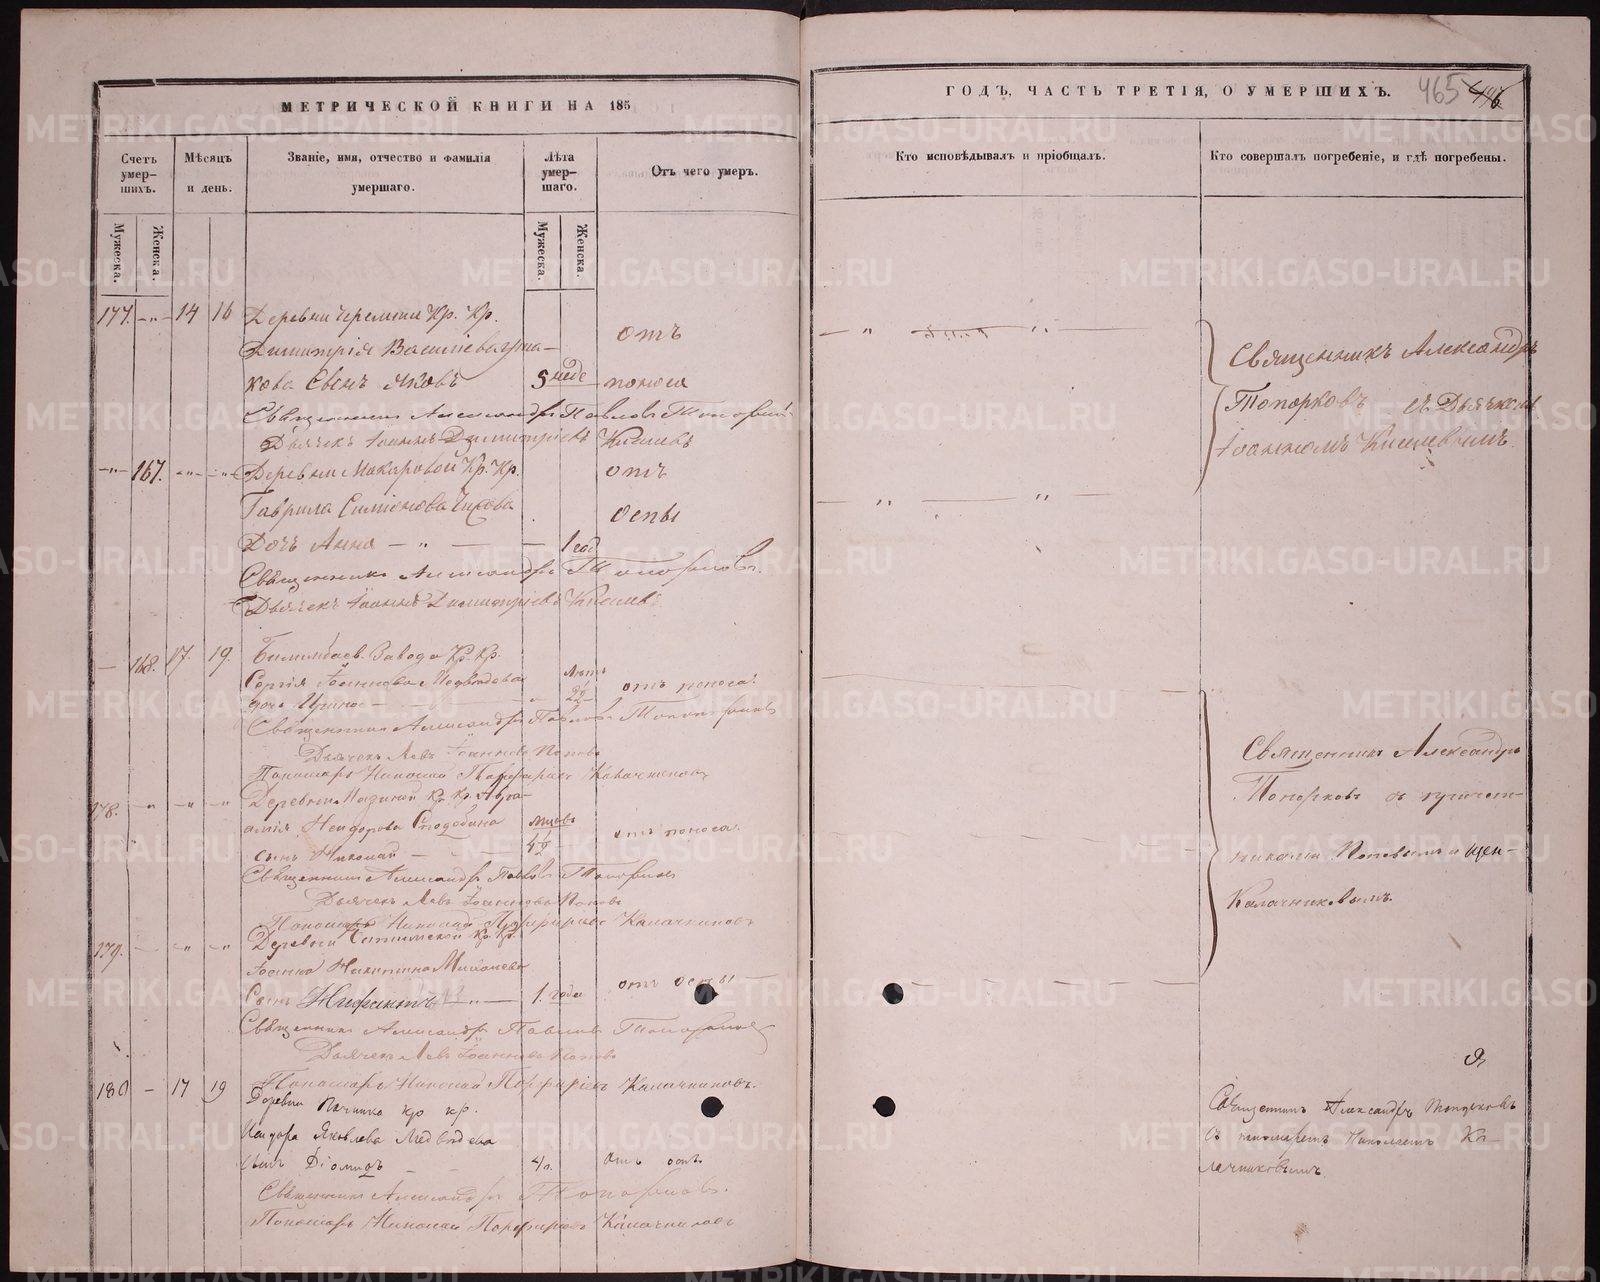 МЕТРИЧЕСКОЙ КНИГИ НА 185
ГОДЪ, ЧАСТЬ ТРЕТІЯ, О УМЕРШИХЪ.
465
Счетъ умер-
шихъ.
Мѣсяцъ
и день.
Званіе, имя, отчество и фамилія
умершаго.
Лѣта
умер-
шаго.
Отъ чего умеръ.
Кто исповѣдывалъ и пріобщалъ.
Кто совершалъ погребеніе, и гдѣ погребены.
Мужеска.
Женска.
Мужеска.
Женска.
177. 14 16 Деревни Черемши Кр. Кр.
Димитрія Васильева
кова Сынъ Яковъ 5 неде
отъ
поноса
Священникъ Александръ Павловъ Топорковъ
Дьячекъ Іоаннъ Димитріевъ Киселевъ
Священникъ Александръ
Топорковъ съ Дьячкомъ
Іоанномъ Киселевымъ.
167. Деревни Макаровой Кр. Кр.
Гаврила Симіонова
Дочь Анна 1 год
отъ
оспы
Священникъ Александръ Топорковъ.
Дьячекъ Іоаннъ Димитріевъ Киселевъ
168. 17. 19. Билимбаев. Завода Кр. Кр.
Сергія Іоаннова Медведева
дочь Ирина
отъ поноса.
Священникъ Александръ Павловъ Топорковъ
Дьячекъ Левъ Іоанновъ Поповъ
Пономарь Николай Порфиріевъ Калачниковъ
178. Деревни Кр. Кр.
сынъ Николай
мцовъ
отъ поноса.
Священникъ Александръ Павловъ Топорковъ
Дьячекъ Левъ Іоанновъ Поповъ
Пономарь Николай Порфиріевъ Калачниковъ
Священникъ Александръ
Топорковъ съ причет-
никами Поповымъ и
Калачниковымъ.
179. Деревни Кр. Кр.
Іоанна Никитина
Сынъ Нифантъ 1. года
отъ оспы
Священникъ Александръ Павловъ Топорковъ
Дьячекъ Левъ Іоанновъ Поповъ
Пономарь Николай Порфиріевъ Калачниковъ.
180 17 19 Деревни кр кр.
Исидора Яковлева Медведева
сынъ Діомидъ 4 л.
отъ осп.
Священникъ Александръ Топорковъ.
Пономарь Николай Порфиріевъ Калачниковъ
Священникъ Александръ Топорковъ
съ пономаремъ Николаемъ Ка-
лачниковымъ
METRIKI.GASO-URAL.RU